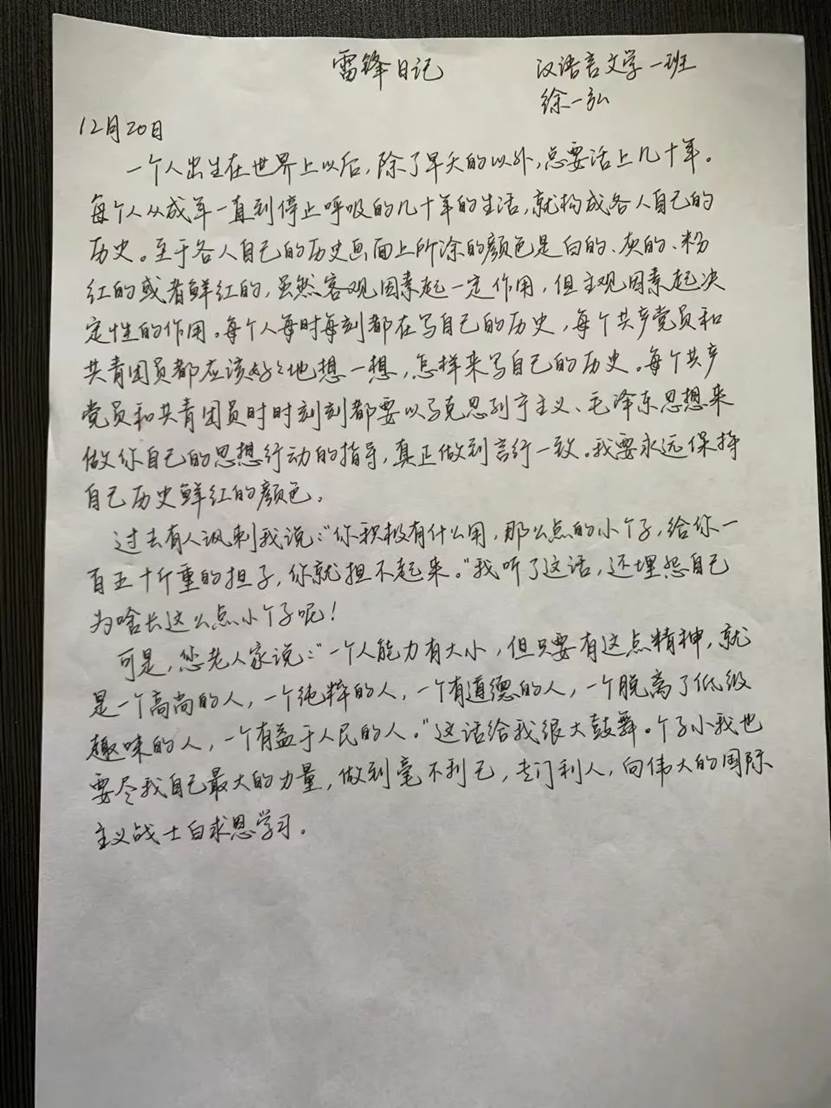 雷锋日记 汉语言文学一班
徐一弘
12月20日
一个人出生在世界上以后，除了早夭的以外，总要活上几十年。
每个人从成年一直到停止呼吸的几十年的生活，就构成各人自己的
历史。至于各人自己的历史画面上所涂的颜色是白的、灰的、粉
红的或者鲜红的，虽然客观因素起一定作用，但主观因素起决
定性的作用。每个人每时每刻都在写自己的历史，每个共产党员和
共青团员都应该好々地想一想，怎样来写自己的历史。每个共产
党员和共青团员时时刻刻都要以马克思列宁主义、毛泽东思想来
做你自己的思想行动的指导，真正做到言行一致。我要永远保持
自己历史鲜红的颜色。
过去有人讽刺我说：“你积极有什么用，那么点的小个子，给你一
百五十斤重的担子，你就担不起来。”我听了这话，还埋怨自己
为啥长这么点小个子呢！
可是，您老人家说：“一个人能力有大小，但只要有这点精神，就
是一个高尚的人，一个纯粹的人，一个有道德的人，一个脱离了低级
趣味的人，一个有益于人民的人。”这话给我很大鼓舞。个子小我也
要尽我自己最大的力量，做到毫不利己，专门利人，向伟大的国际
主义战士白求恩学习。